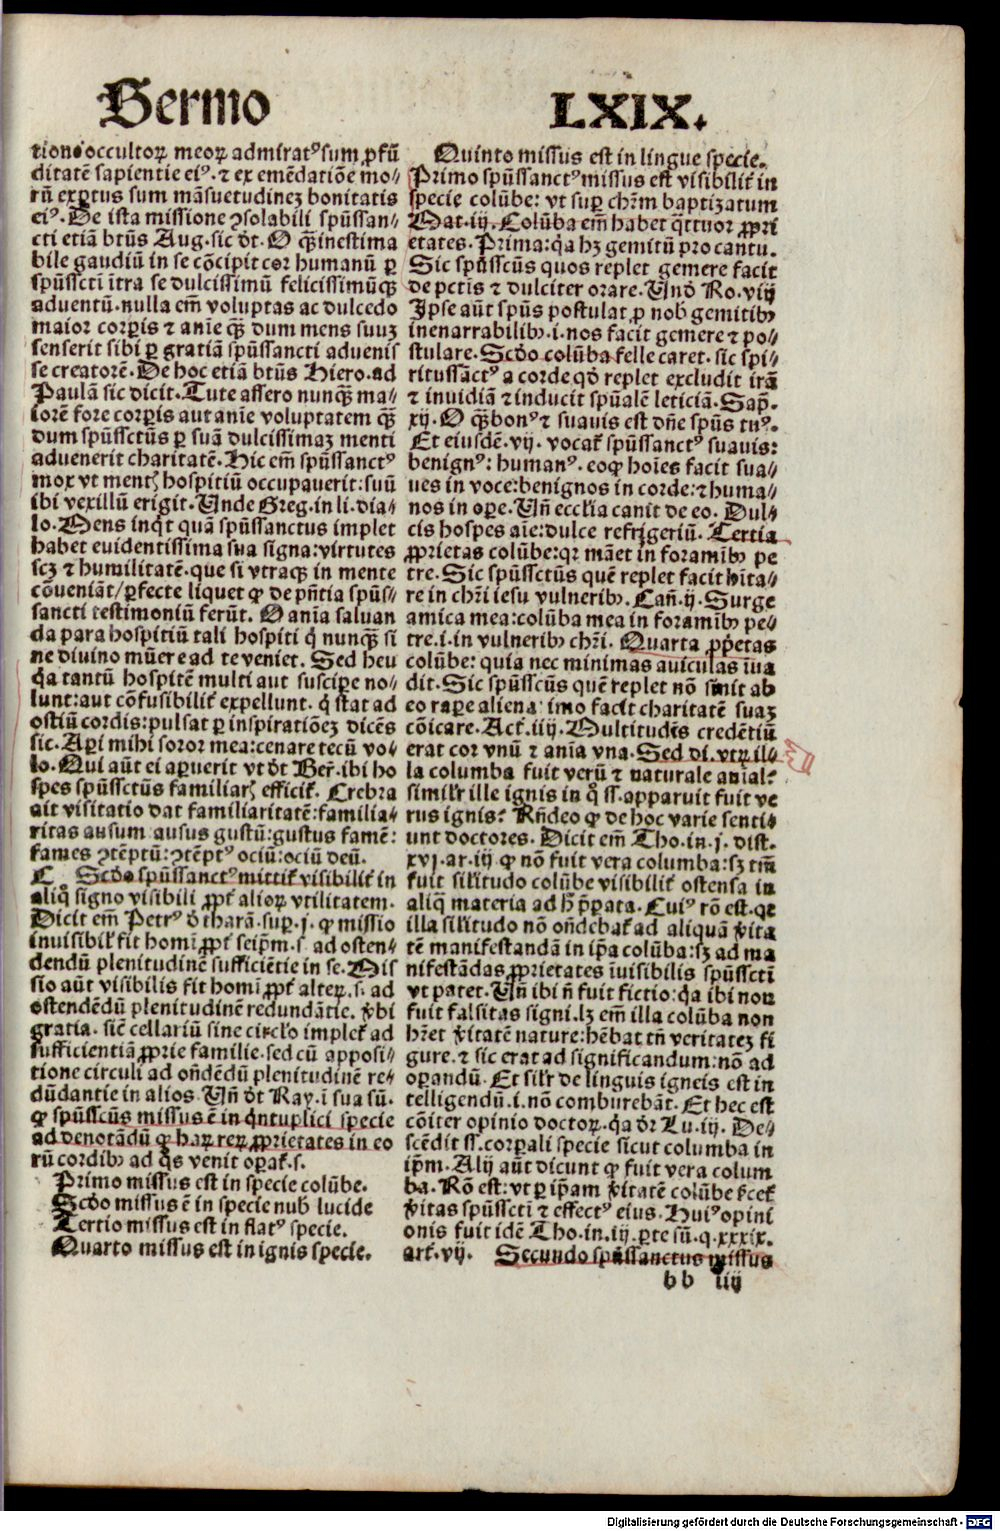 Sermo LXIX.
tione occultoꝝ meoꝝ admiratꝰ sum ꝓfū
ditatē sapientie eiꝰ. ⁊ ex emēdatiōe mo⸗
rū exꝑtus sum māsuetudinez bonitatis
eiꝰ. De ista missione ꝯsolabili spūssan⸗
cti etiā btūs Aug. sic dt. O qꝫ̄ inestima
bile gaudiū in se cōcipit cor humanū ꝑ
spūsscti ītra se dulcissimū felicissimūqꝫ
aduentū. nulla em̄ voluptas ac dulcedo
maior corꝑis ⁊ anīe qꝫ̄ dum mens suuꝫ
senserit sibi ꝑ gratiā spūssancti aduenis
se creatorē. De hoc etiā btūs Hiero. ad
Paulā sic dicit. Tute assero nunqꝫ̄ ma⸗
iorē fore corꝑis aut anīe voluptatem qꝫ̄
dum spūssctūs ꝑ suā dulcissimaꝫ menti
aduenerit charitatē. Hic em̄ spūssanctꝰ
mox vt mentꝭ hospitiū occupauerit: suū
ibi vexillū erigit. Unde Greg. in li. dia⸗
lo. Mens inqͥt quā spūssanctus implet
habet euidentissima sua signa: virtutes
scꝫ ⁊ humilitatē. que si vtraqꝫ in mente
cōueniāt/ ꝑfecte liquet ꝙ de pn̄tia spūs⸗
sancti testimoniū ferūt. O anīa saluan
da para hospitiū tali hospiti qͥ nunqꝫ̄ si
ne diuino mūere ad te veniet. Sed heu
qꝛ tantū hospitē multi aut suscipe no⸗
lunt: aut cōfusibiliť expellunt. qͥ stat ad
ostiū cordis: pulsat ꝑ inspiratiōeꝫ dicēs
sic. Aꝑi mihi soror mea: cenare tecū vo⸗
lo. Qui aūt ei aꝑuerit vt dt Ber̄. ibi ho
spes spūssctūs familiarꝭ efficit̄. Crebra
ait visitatio dat familiaritatē: familia⸗
ritas ausum: ausus gustū: gustus famē:
fames ꝯtēptū: ꝯtēptꝰ ociū: ociū deū.
C Scdo spūssanctꝰ mittit̄ visibiliť in
aliqͦ signo visibili ꝓpt̄ alioꝝ vtilitatem.
Dicit em̄ Petrꝰ d̓ tharā. suꝑ. j. ꝙ missio
inuisibil̓ fit homī ꝓpt̄ seip̄m. s. ad osten⸗
dendū plenitudinē sufficiētie in se. Mis
sio aūt visibilis fit homī ꝓpt̄ alteꝝ. s. ad
ostendēdū plenitudinē redundātie. v̓bi
gratia. siē cellariū sine circl̓o implet̄ ad
sufficientiā ꝓprie familie. sed cū apposi⸗
tione circuli ad on̄dēdū plenitudinē re⸗
dūdantie in alios. Un̄ dt Ray. ī sua sū.
ꝙ spūsscūs missus ē in qͥntuplici specie
ad denotādū ꝙ haꝝ reꝝ ꝓprietates in eo
rū cordibꝫ ad qͦs venit oꝑat̄. s.
Primo missus est in specie colūbe.
Scdo missus ē in specie nub̓ lucide
Tertio missus est in flatꝰ specie.
Quarto missus est in ignis specie.
Quinto missus est in lingue specie.
Primo spūssanctꝰ missus est visibiliť in
specie colūbe: vt suꝑ chr̄m baptizatum
Mat. iij. Colūba em̄ habet qͣttuor ꝓpri
etates. Prima: qꝛ hꝫ gemitū pro cantu.
Sic spūsscūs quos replet gemere facit
de pctīs ⁊ dulciter orare. Und̓ Ro. viij
Ipse aūt spūs postulat ꝓ nob̓ gemitibꝫ
inenarrabilibꝫ. i. nos facit gemere ⁊ po⸗
stulare. Scdo colūba felle caret. sic spi⸗
ritussāctꝰ a corde qd̓ replet excludit irā
⁊ inuidiā ⁊ inducit spūalē leticiā. Sap̄.
xij. O qꝫ̄ bonꝰ ⁊ suauis est dn̄e spūs tuꝰ.
Et eiusdē. vij. vocat̄ spūssanctꝰ suauis:
benignꝰ: humanꝰ. eoꝙ hoīes facit sua⸗
ues in voce: benignos in corde: ⁊ huma⸗
nos in oꝑe. Un̄ eccl̓ia canit de eo. Dul⸗
cis hospes aīe: dulce refrigeriū. Tertia
ꝓprietas colūbe: qꝛ māet in foramībꝫ pe
tre. Sic spūssctūs quē replet facit hīta⸗
re in chr̄i iesu vulneribꝫ. Cań. ij. Surge
amica mea: colūba mea in foramībꝫ pe⸗
tre. i. in vulneribꝫ chr̄i. Quarta ꝓp̓etas
colūbe: quia nec minimas auiculas īua
dit. Sic spūsscūs quē replet nō sinit ab
eo raꝑe aliena: imo facit charitatē suaꝫ
cōicare. Act̄. iiij. Multitudēs credētiū
erat cor vnū ⁊ anīa vna. Sed di. vtꝝ il⸗
la columba fuit verū ⁊ naturale anīal?
simil̓r ille ignis in qͦ ss. apparuit fuit ve
rus ignis? Rn̄deo ꝙ de hoc varie senti⸗
unt doctores. Dicit em̄ Tho. in. j. dist.
xvj. ar. iij ꝙ nō fuit vera columba: sꝫ tm̄
fuit sil̓itudo colūbe visibiliť ostensa in
aliqͣ materia ad hͦ p̄parata. Cuiꝰ rō est. qꝛ
illa sil̓itudo nō on̄debat̄ ad aliquā v̓ita
tē manifestandā in ip̄a colūba: sꝫ ad ma
nifestādas ꝓprietates īuisibilis spūssctī
vt patet. Un̄ ibi n̄ fuit fictio: qꝛ ibi non
fuit falsitas signi. lꝫ em̄ illa colūba non
hr̄et v̓itatē nature: hēbat tn̄ veritateꝫ fi
gure. ⁊ sic erat ad significandum: nō ad
oꝑandū. Et sil̓r de linguis igneis est in
telligendū. i. nō comburebāt. Et hec est
cōiter opinio doctoꝝ. qꝛ dr̄ Lu. iij. De⸗
scēdit ss. corꝑali specie sicut columba in
ip̄m. Alij aūt dicunt ꝙ fuit vera colum
ba. Rō est: vt ꝑ ip̄am v̓itatē colūbe
v̓itas spūssctī ⁊ effectꝰ eius. Huiꝰ opini
onis fuit idē Tho. in. iij. ꝑte sū. q. xxxix.
art̄. vij. Secundo spūssanctus missus
bb iiij
Digitalisierung gefördert durch die Deutsche Forschungsgemeinschaft - DFG